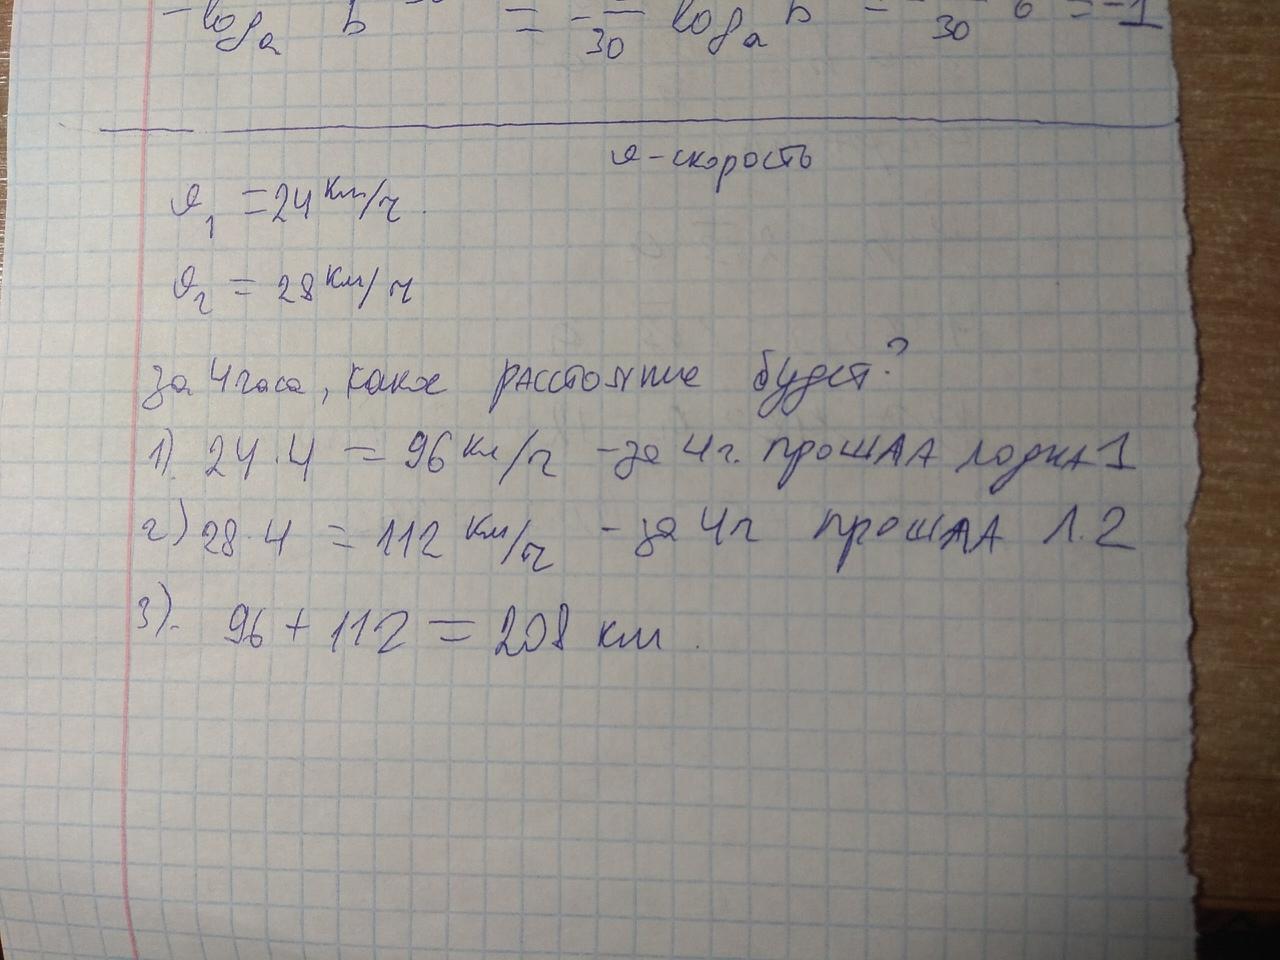 -log_a b = -/30 log_a b = -/30 6 = -1
v - скорость
v₁ = 24 км/ч.
v₂ = 28 км/ч
за 4 часа, какое расстояние будет?
1). 24 · 4 = 96 км/ч - за 4 ч. прошла лодка 1
2) 28 · 4 = 112 км/ч - за 4 ч прошла л. 2
3). 96 + 112 = 208 км.